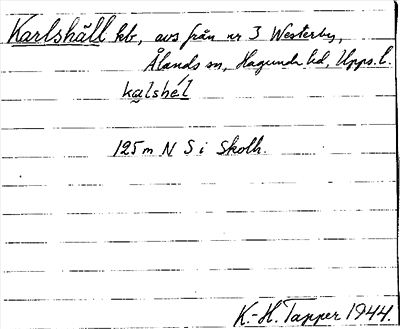 Karlshäll hb, avs från nr 3 Westerby,
Ålands sn, Hagunda hd, Upps. l.
kalshé̤l
125 m N S i Skolh.
K.-H. Tapper 1944.